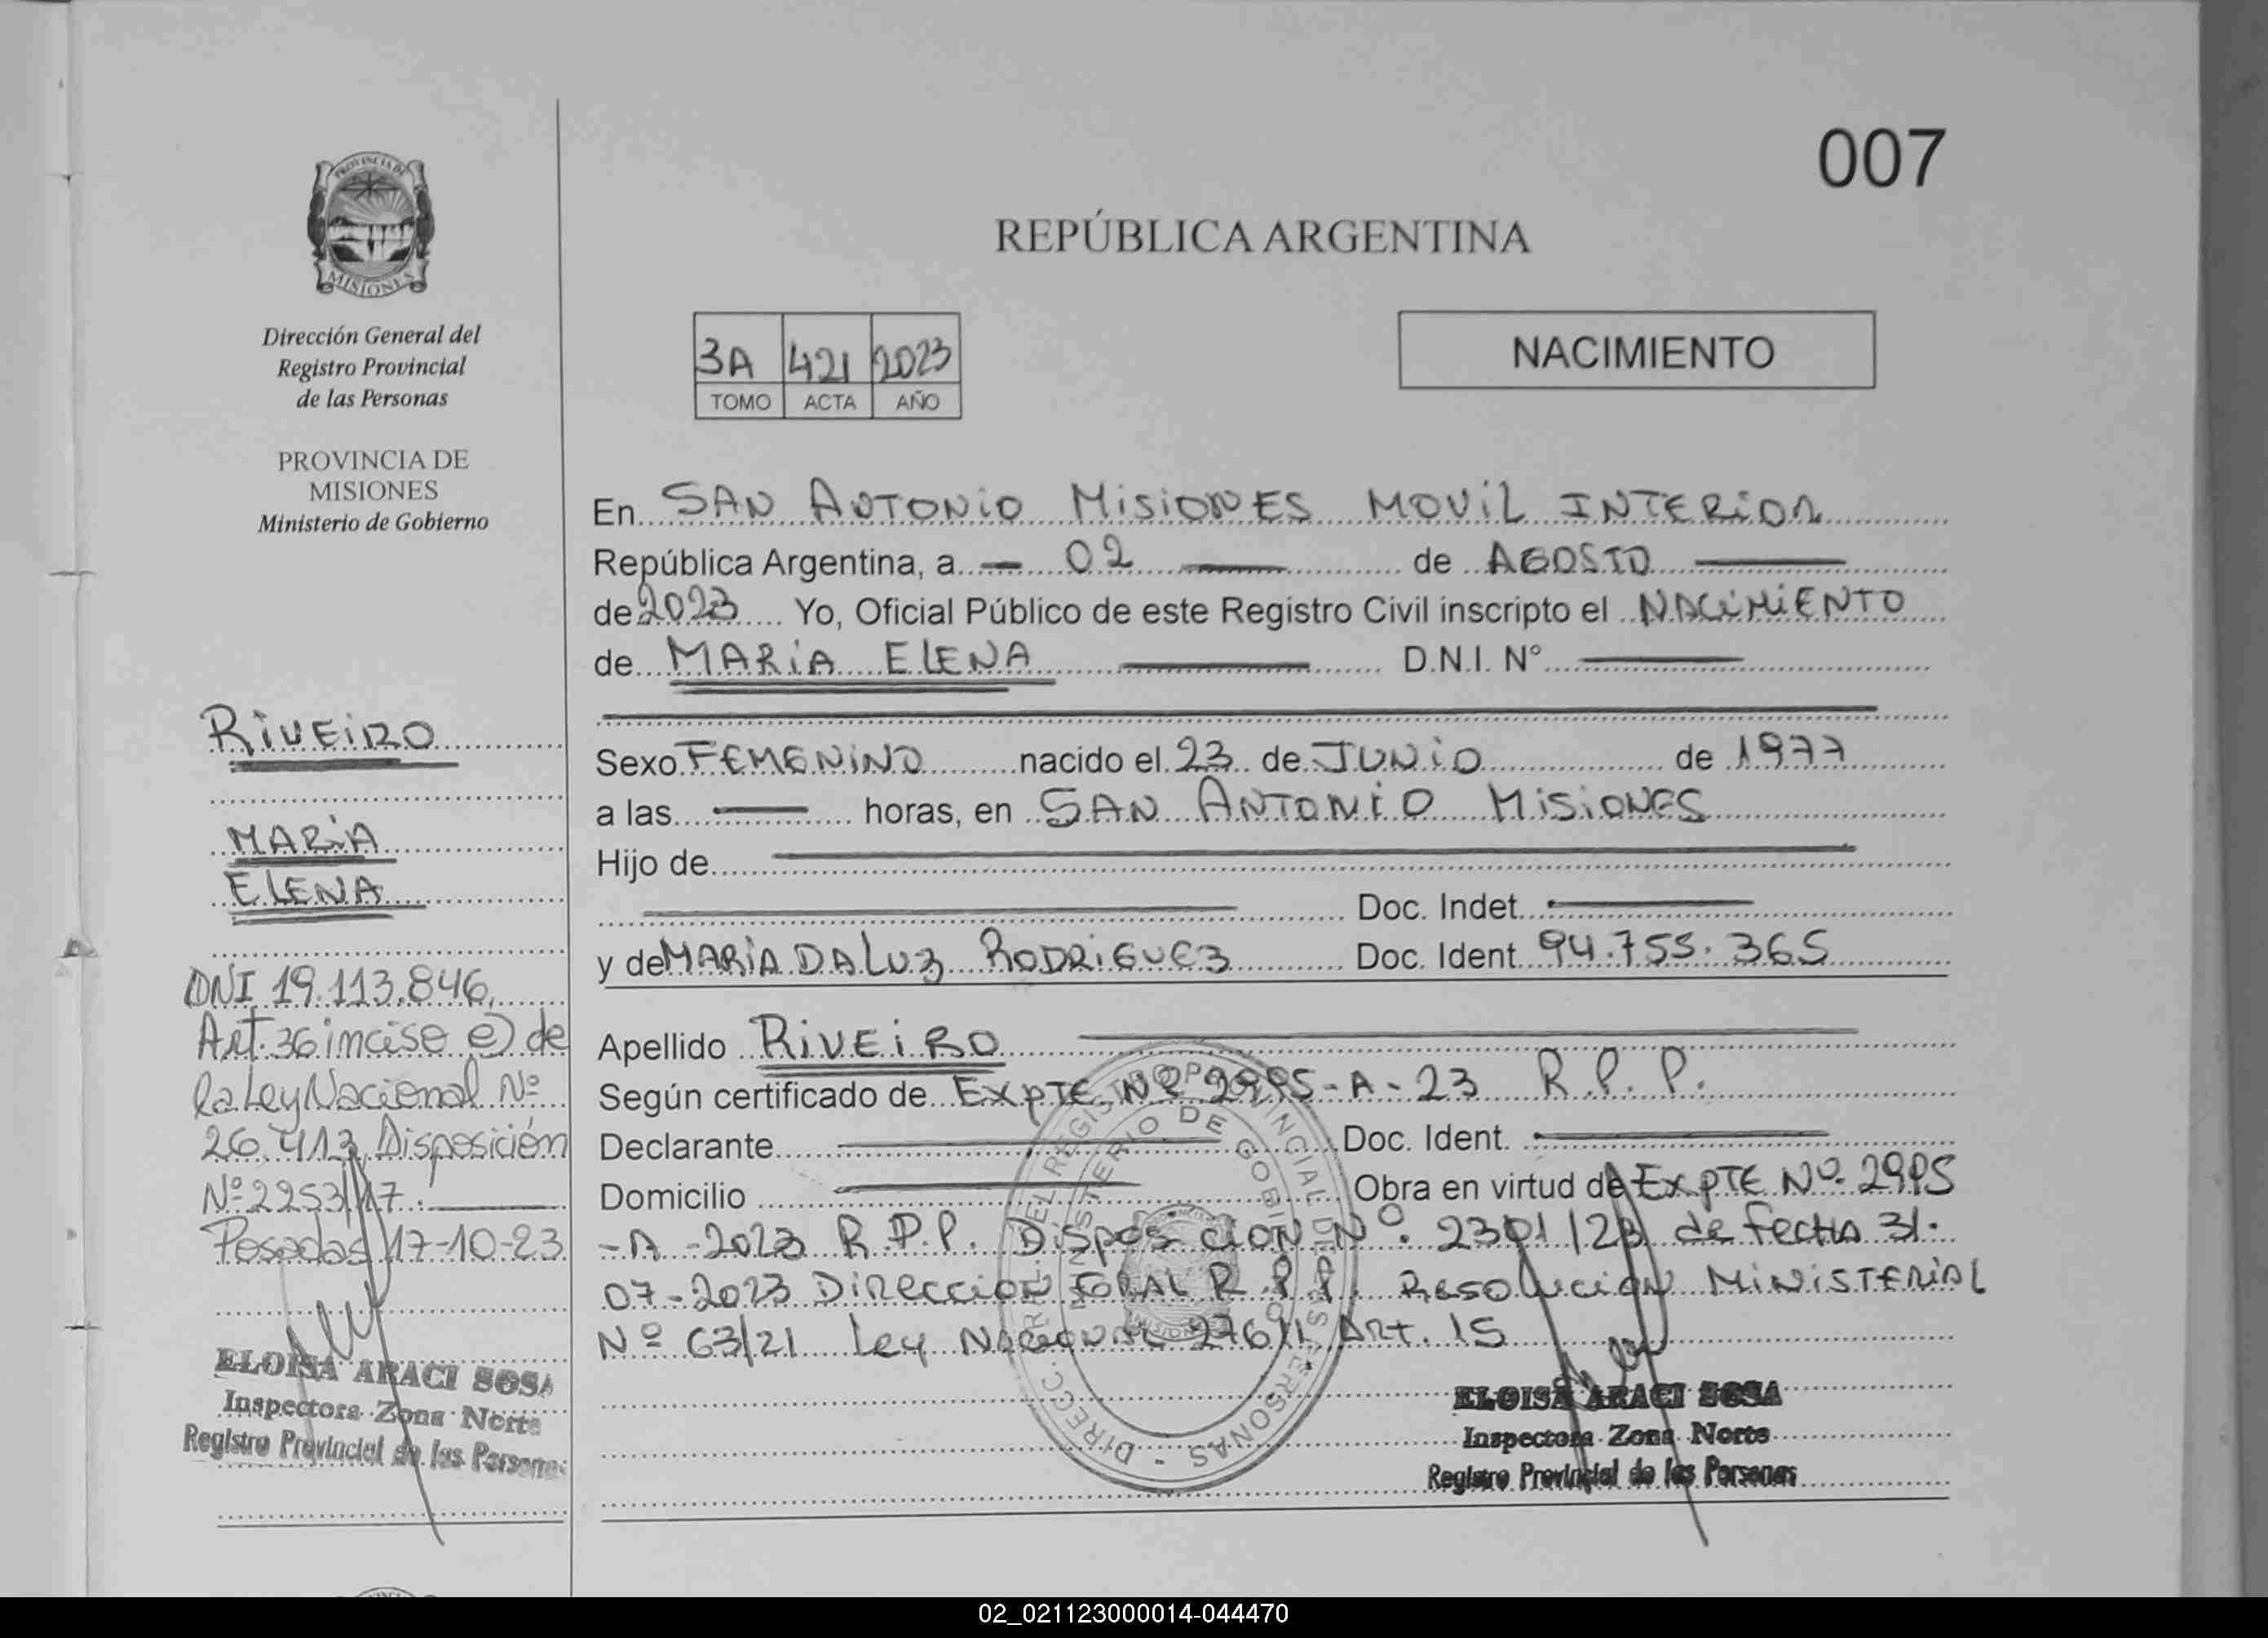 007
REPÚBLICA ARGENTINA
PROVINCIA DE
MISIONES
Dirección General del
Registro Provincial
de las Personas
PROVINCIA DE
MISIONES
Ministerio de Gobierno
3A 421 2023
TOMO ACTA AÑO
NACIMIENTO
En SAN ANTONIO MISIONES MOVIL INTERIOR
República Argentina, a 02 de AGOSTO
de 2023 Yo, Oficial Público de este Registro Civil inscripto el NACIMIENTO
de MARIA ELENA D.N.I. N°
Sexo FEMENINO nacido el 23 de JUNIO de 1977
a las horas, en SAN ANTONIO MISIONES
Hijo de
Doc. Indet.
y de MARIA DA LUZ RODRIGUEZ Doc. Ident. 94.755.365
Apellido RIVEIRO
Según certificado de EXPTE Nº 2995-A-23 R.P.P.
Declarante Doc. Ident.
Domicilio Obra en virtud de EXPTE Nº 2995
-A-2023 R.P.P. DISPOSICION Nº. 2301/23 de fecha 31.
07-2023 DIRECCION GRAL R.P.P. RESOLUCION MINISTERIAL
Nº 63/21 Ley NACIONAL 27611 ART. 15
RIVEIRO
MARIA
ELENA
DNI 19.113.846,
Art. 36 inciso e) de
la Ley Nacional Nº
26.413, Disposición
Nº 2253/17.
Posadas 17-10-23
ELOISA ARACI SOSA
Inspectora Zona Norte
Registro Provincial de las Personas
ELOISA ARACI SOSA
Inspectora Zona Norte
Registro Provincial de las Personas
MINISTERIO DE GOBIERNO
02_021123000014-044470